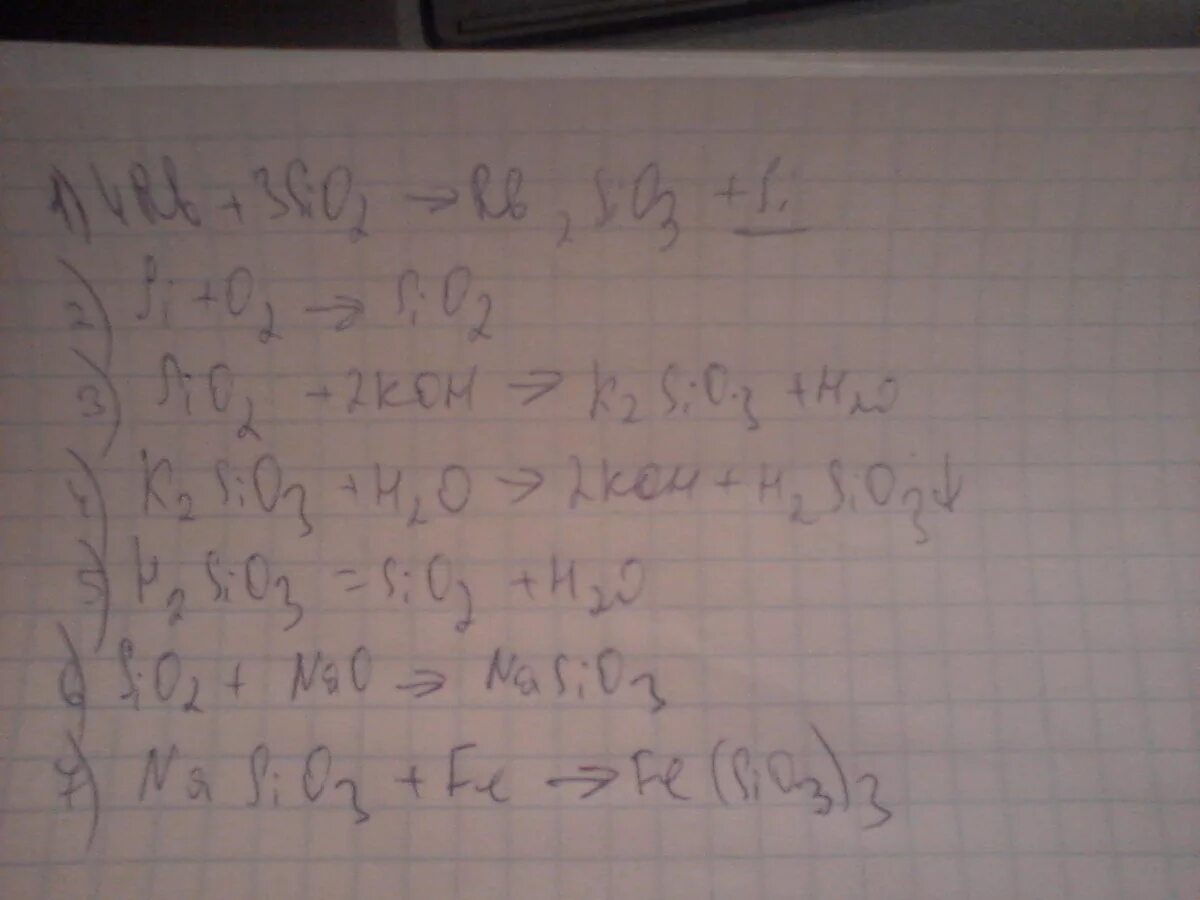 1) 4Rb + 3SiO2 → Rb2SiO3 + Si
2) Si + O2 → SiO2
3) SiO2 + 2KOH → K2SiO3 + H2O
4) K2SiO3 + H2O → 2KOH + H2SiO3↓
5) H2SiO3 = SiO2 + H2O
6) SiO2 + NaO → NaSiO3
7) NaSiO3 + Fe → Fe(SiO3)3